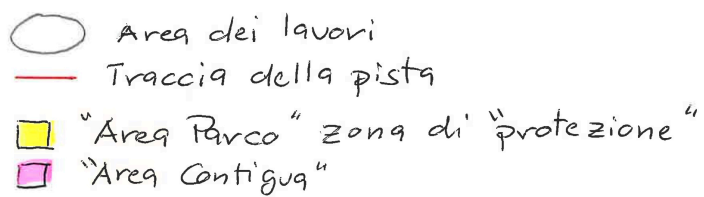 Area dei lavori
Traccia della pista
"Area Parco" zona di "protezione"
"Area Contigua"